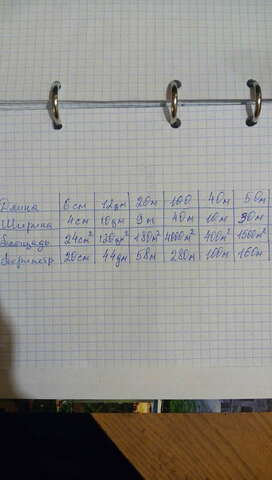 Длина 6 см 12дм 20м 100 40м 50м
Ширина 4см 10дм 9м 40м 10м 30м
Площадь 24см² 120дм² 180м² 4000м² 400м² 1500м²
Периметр 20см 44дм 58м 280м 100м 160м